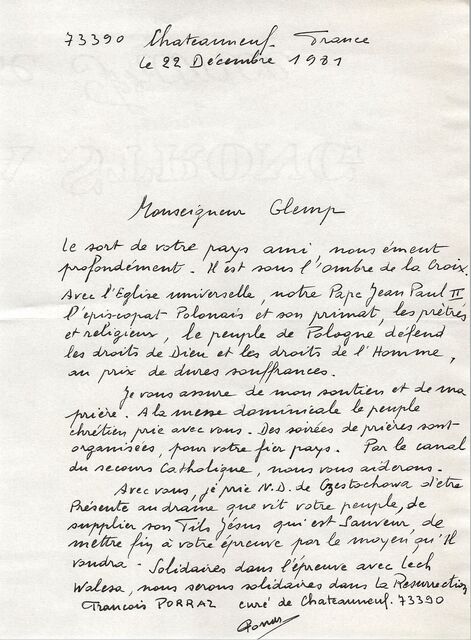 73390 Chateauneuf. France
le 22 Décembre 1981
Monseigneur Glemp
Le sort de votre pays ami, nous émeut
profondément. Il est sous l'ombre de la Croix.
Avec l'Eglise universelle, notre Pape Jean Paul II
l'épiscopat Polonais et son primat, les prêtres
et religieux, le peuple de Pologne défend
les droits de Dieu et les droits de l'Homme,
au prix de dures souffrances.
Je vous assure de mon soutien et de ma
prière. A la messe dominicale le peuple
chrétien prie avec vous. Des soirées de prières sont
organisées, pour votre fier pays. Par le canal
du secours Catholique, nous vous aiderons.
Avec vous, je prie N.D. de Czestochowa d'être
Présente au drame que vit votre peuple, de
supplier son Fils Jésus qui est Sauveur, de
mettre fin à votre épreuve par le moyen qu'Il
voudra. Solidaires dans l'épreuve avec Lech
Walesa, nous serons solidaires dans la Resurrection
Francois PORRAZ curé de Chateauneuf. 73390
Porraz